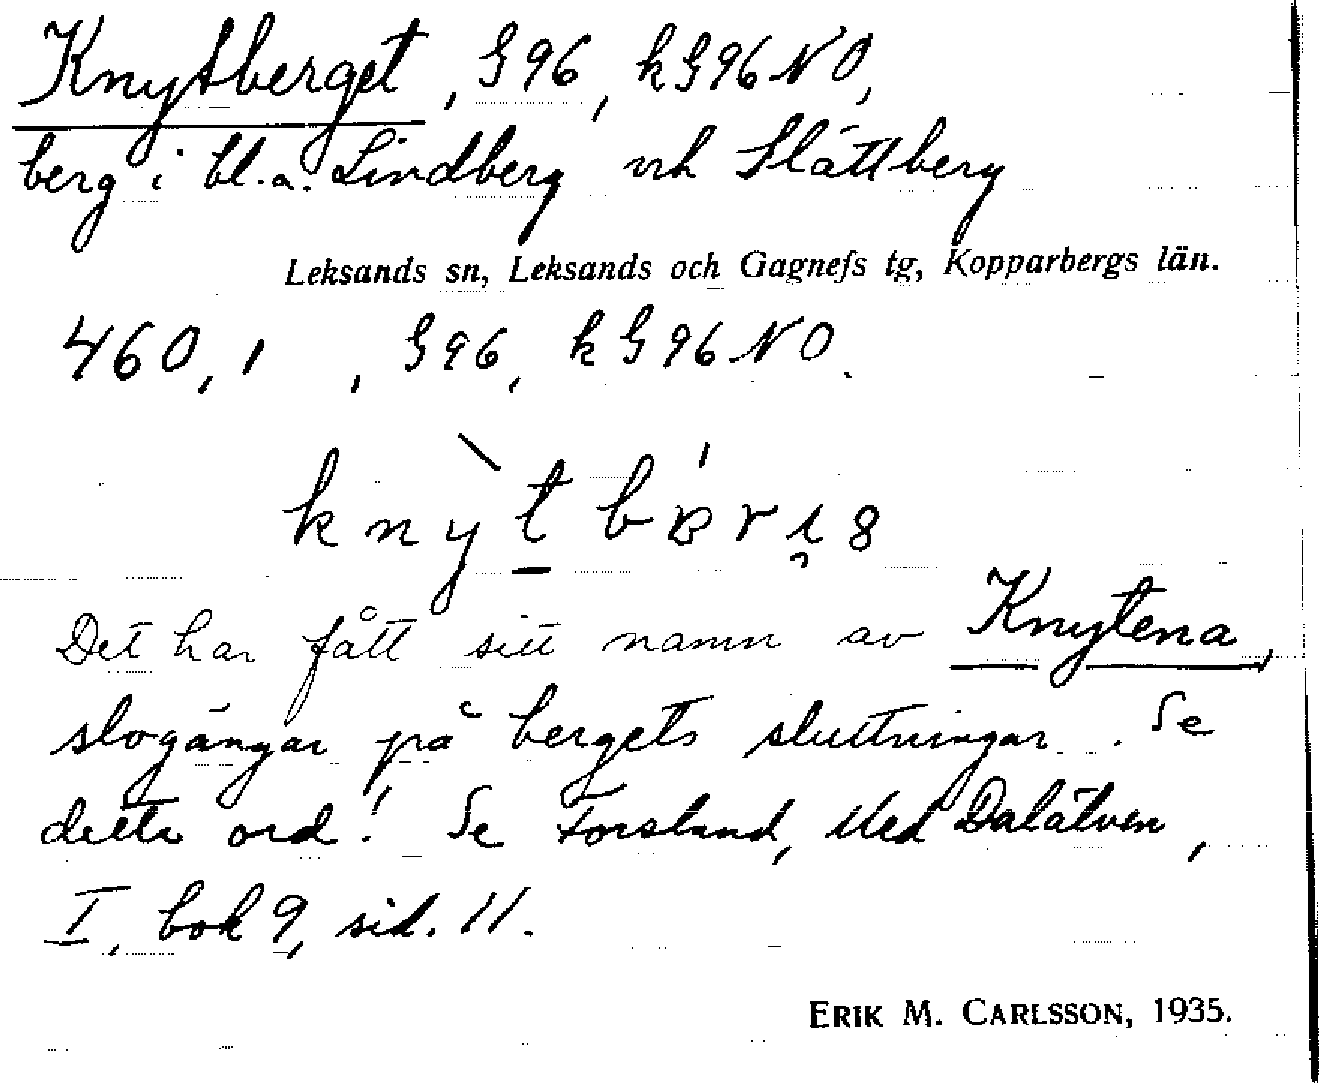 Knytberget, G 96, k G 96 NO,
berg i bl.a. Lindberg och Slättberg
Leksands sn, Leksands och Gagnefs tg, Kopparbergs län.
460,1, G 96, k G 96 NO.
Det har fått sitt namn av Knytena,
slogångar på bergets sluttningar. Se
detta ord! Se Forslund, Med Dalälven,
I, bok 9, sid. 11.
ERIK M. CARLSSON, 1935.